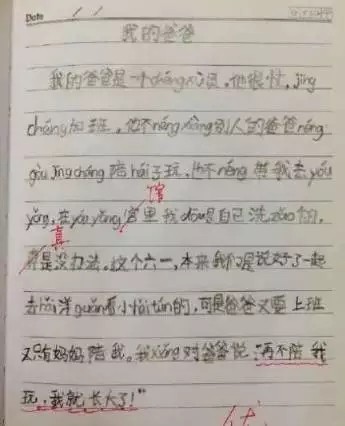 Date
我的爸爸
我的爸爸是一个chéngxù员,他很忙,jīng
cháng加班,他不néng xiàng别人的爸爸néng
gòu jīng cháng陪hái子玩,他不néng带我去yóu
馆
yǒng,在yóu yǒng宫里我dōu是自己洗zǎo的,
真
是没办法。这个六一,本来我们是说好了一起
去hǎi洋guǎn看小hǎi tún的,可是爸爸又要上班
又只有妈妈陪我。我xiǎng对爸爸说:"再不陪我
玩,我就长大了!"
优